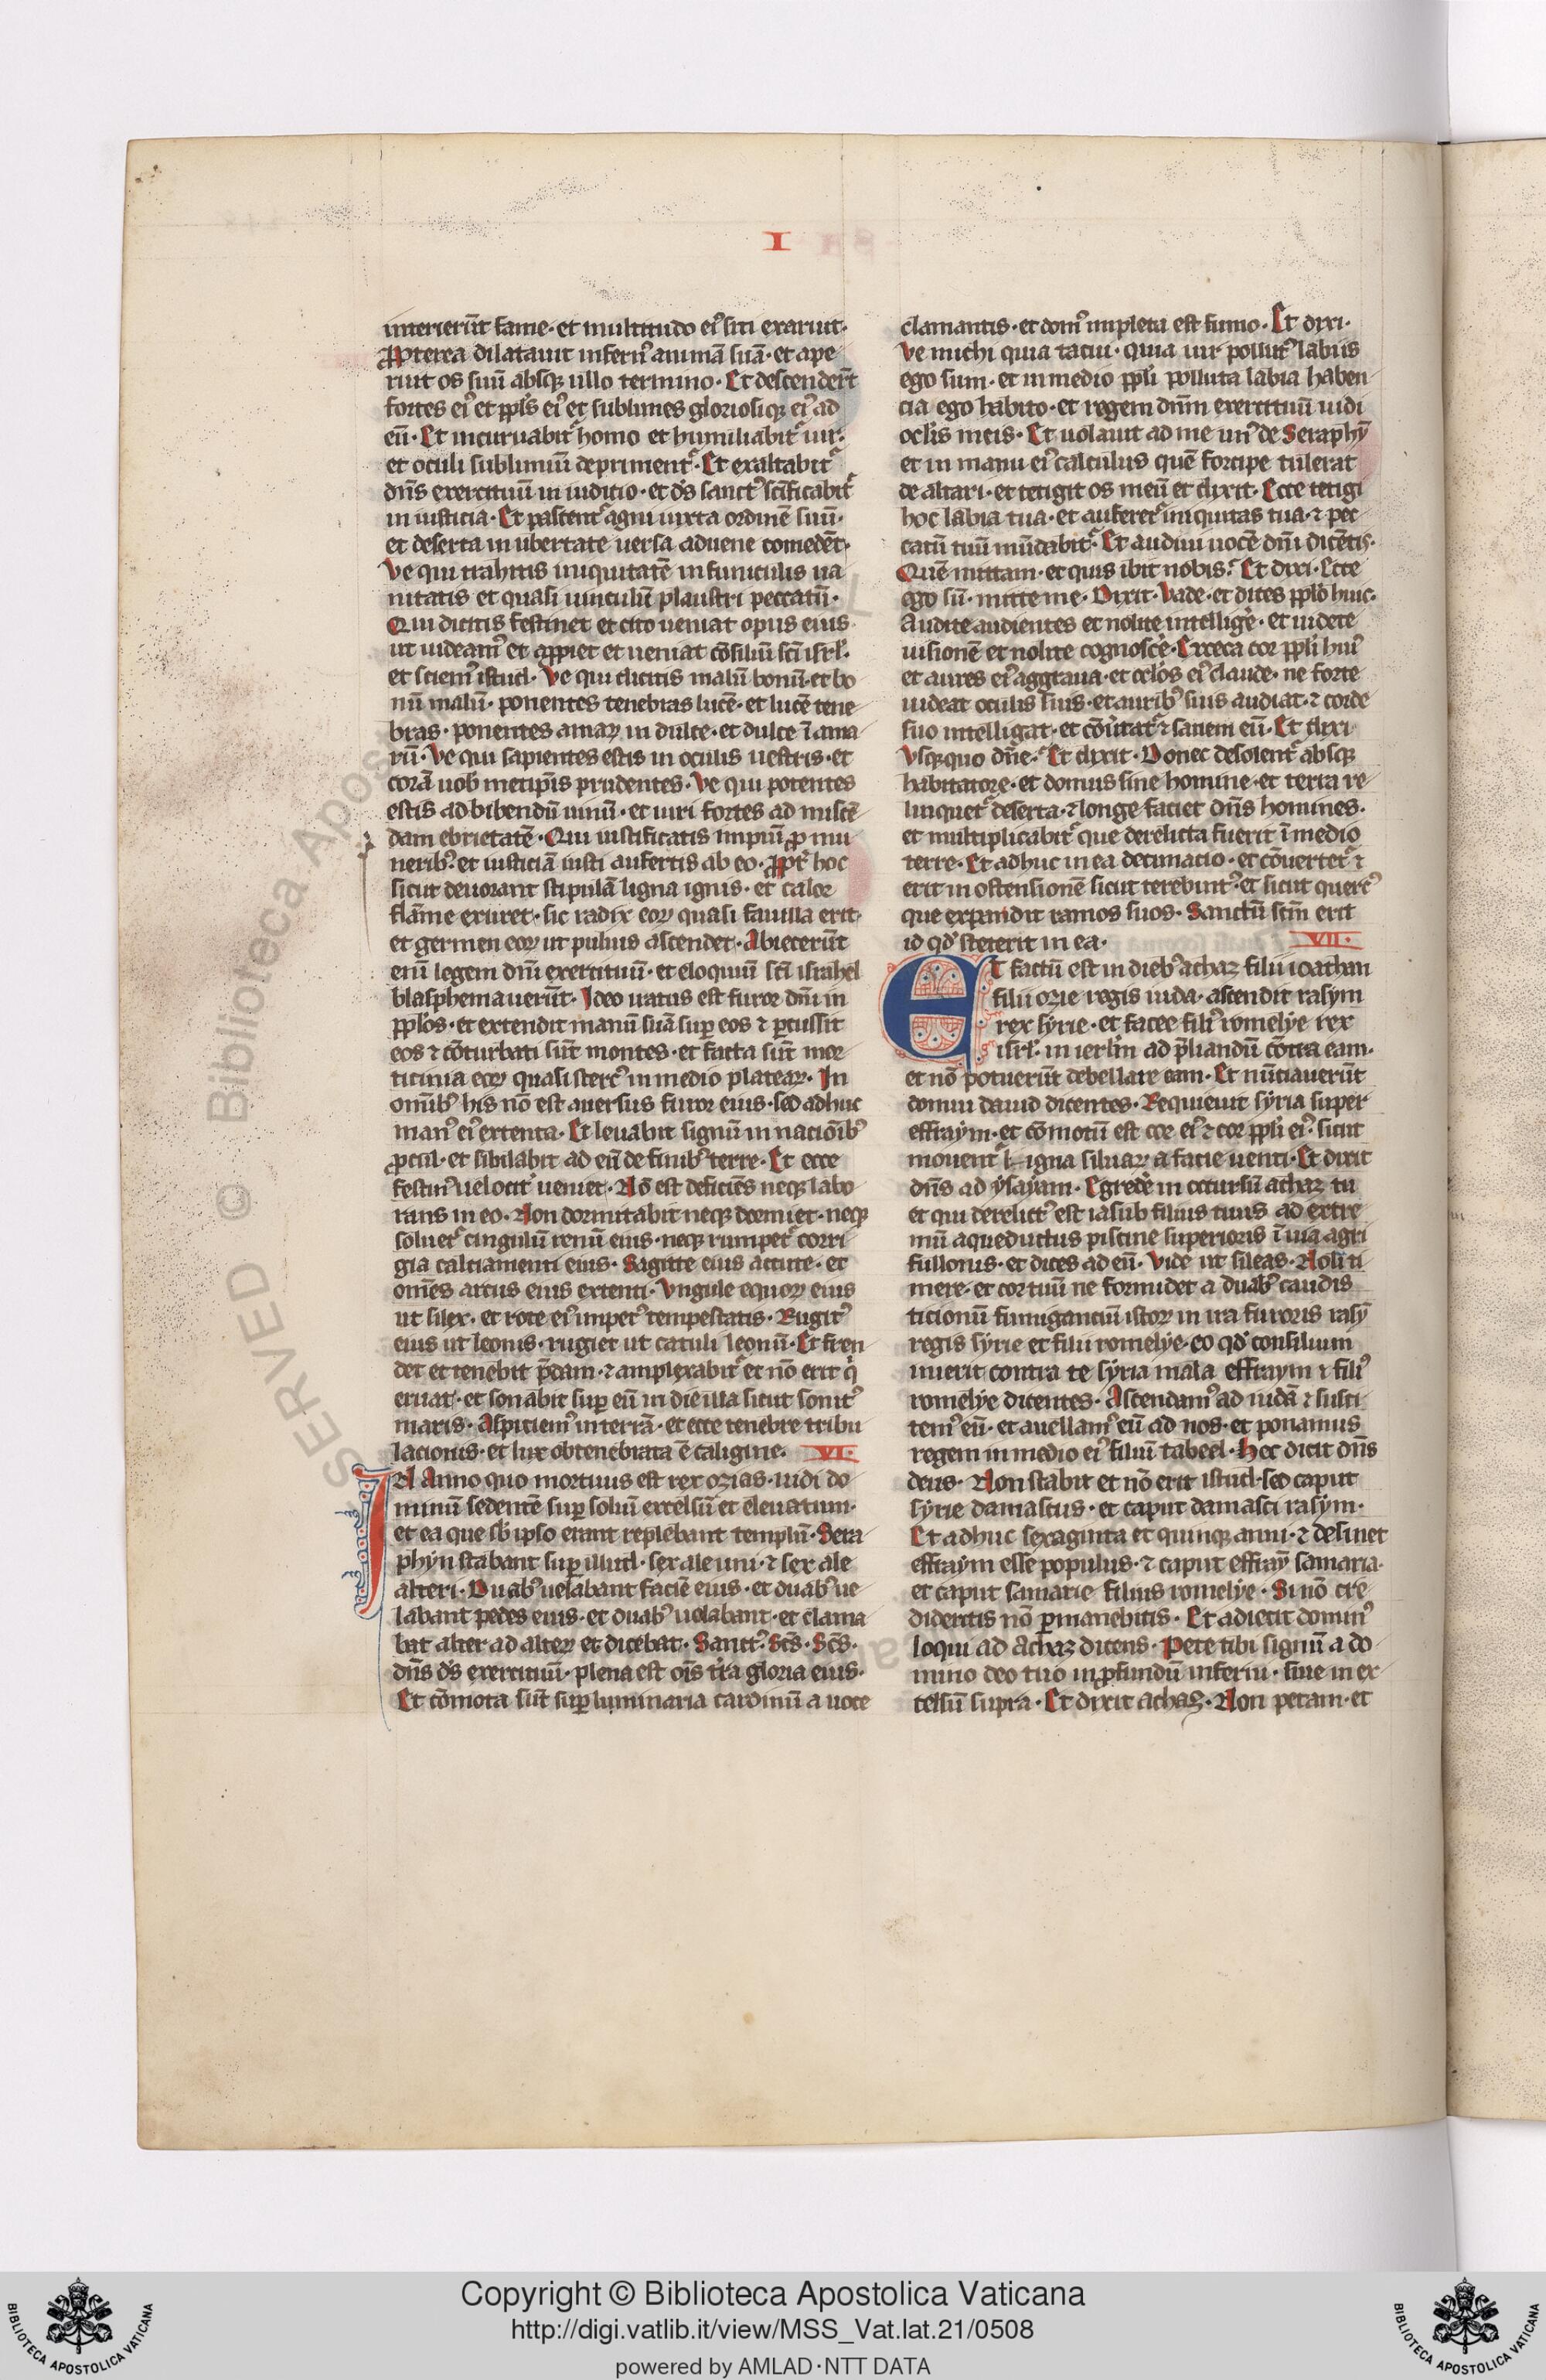 I
interierūt fame · et multitudo eiꝰ siti exaruit ·
Ꝓpterea dilatauit infernꝰ animā suā · et ape
ruit os suū absqꝫ ullo termino · Et descenderūt
fortes eiꝰ et ppl̅s eiꝰ et sublimes gloriosiqꝫ eiꝰ ad
eū · Et incuruabit᷑ homo et humiliabit᷑ uir ·
et oculi sublimiū depriment᷑ · Et exaltabit᷑
dn̅s exercituū in iuditio · et d̅s sanctꝰ sc̅ificabit᷑
in iusticia · Et pascent᷑ agni iuxta ordinē suū ·
et deserta in ubertate uersa aduene comedēt ·
Ve qui trahitis iniquitatē in funiculis ua
nitatis et quasi uinculū plaustri peccatū ·
Qui dicitis festinet et cito ueniat opus eius
ut uideamꝰ et appiet et ueniat cōsiliū sc̅i isrl̅ ·
et sciemꝰ istud · Ve qui dicitis malū bonū · et bo
nū malū · ponentes tenebras lucē · et lucē tene
bras · ponentes amaꝝ in dulce · et dulce ī ama
rū · Ve qui sapientes estis in oculis uestris · et
corā uob metip̅is prudentes · Ve qui potentes
estis ad bibendū uinū · et uiri fortes ad miscē
dam ebrietatē · Qui iustificatis impiū ꝓ mu
neribꝰ · et iusticiā iusti aufertis ab eo · Ꝓpt᷑ hoc
sicut deuorant stipulā ligna ignis · et calor
flāme exuret · sic radix eoꝝ quasi fauilla erit ·
et germen eoꝝ ut puluis ascendet · Abiecerūt
enī legem dn̅i exercituū · et eloquiū sc̅i israhel
blasphemauerūt · Ideo iratus est furor dn̅i in
ppl̅os · et extendit manū suā suꝑ eos ⁊ ꝑcussit
eos ⁊ cōturbati sūt montes · et facta sūt mor
ticinia eoꝝ quasi stercꝰ in medio plateaꝝ · In
omībꝰ his nō est auersus furor eius · sed adhuc
manꝰ eiꝰ extenta · Et leuabit signū in nacionībꝰ
ꝓcul · et sibilabit ad eū de finibꝰ terre · Et ecce
festinꝰ uelocit᷑ ueniet · Nō est deficiēs neqꝫ labo
rans in eo · Non dormitabit neqꝫ dormiet · neqꝫ
soluet᷑ cingulū renū eius · neqꝫ rumpet᷑ corri
gia calciamenti eius · Sagitte eius accute · et
omēs arcus eius extenti · Vngule equoꝝ eius
ut silex · et rote eiꝰ impetꝰ tempestatis · Rugitꝰ
eius ut leonis · rugiet ut catuli leonū · Et fren
det et tenebit p̅dam · ⁊ amplexabit᷑ et nō erit q̇
eruat · et sonabit suꝑ eū in die illa sicut sonitꝰ
maris · Aspiciemꝰ in terrā · et ecce tenebre tribu
lacionis · et lux obtenebrata ē caligine · VI ·
IN Anno quo mortuus est rex ozias · uidi do
minū sedentē suꝑ soliū excelsū et eleuatum ·
et ea que sb̅ ipso erant replebant templū · Sera
phyn stabant suꝑ illud · sex ale uni · ⁊ sex ale
alteri · Duabꝰ uelabant faciē eius · et duabꝰ ue
labant pedes eius · et duabꝰ uolabant · et clama
bat alter ad alteꝝ et dicebat · Sanctꝰ · Sc̅s · Sc̅s ·
dn̅s d̅s exercituū · plena est oīs tr̅a gloria eius ·
Et cōmota sūt suꝑ luminaria cardinū a uoce
clamantis · et domꝰ impleta est fumo · Et dixi ·
Ve michi quia tacui · quia uir pollutꝰ labiis
ego sum · et in medio ppl̅i polluta labia haben
cia ego habito · et regem dn̅m exercituū uidi
ocl̅is meis · Et uolauit ad me unꝰ de Seraphȳ
et in manu eiꝰ calculus quē forcipe tulerat
de altari · et tetigit os meū et dixit · Ecce tetigi
hoc labia tua · et auferet᷑ iniquitas tua · ⁊ pec
catū tuū mūdabit᷑ · Et audiui uocē dn̅i dicētis ·
Quē mittam · et quis ibit nobis · Et dixi · Ecce
ego sū · mitte me · Dixit · Vade · et dices ppl̅o huic ·
Audite audientes et nolite intelligē · et uidete
uisionē et nolite cognoscē · Exceca cor ppl̅i huiꝰ
et aures eiꝰ aggraua · et ocl̅os eiꝰ claude · ne forte
uideat oculis suis · et auribꝰ suis audiat · ⁊ corde
suo intelligat · et cōuˀtat᷑ ⁊ sanem eū · Et dixi
Vsqꝫquo dn̅e · Et dixit · Donec desolent᷑ absqꝫ
habitatore · et domus sine homine · et terra re
linquet᷑ deserta · ⁊ longe faciet dn̅s homines ·
et multiplicabit᷑ que derelicta fuerit ī medio
terre · Et adhuc in ea decimacio · et cōuertet᷑ ⁊
erit in ostensionē sicut terebintꝰ · et sicut quercꝰ
que expandit ramos suos · Sanctū sem̅ erit
id qd̅ steterit in ea · VII ·
ET factū est in diebꝰ achaz filii ioathan
filii ozie regis iuda · ascendit rasym
rex syrie · et facee filiꝰ romelye rex
isrl̅ · in ierl̅m ad p̅liandū cōtra eam ·
et nō potuerūt debellare eam · Et nūciauerūt
domui dauid dicentes · Requieuit syria super
effraym · et cōmotū est cor eiꝰ ⁊ cor ppl̅i eiꝰ · sicut
mouent᷑ ligna siluaꝝ a facie uenti · Et dixit
dn̅s ad ysayam · Egredē in occursū achaz tu
et qui derelictꝰ est iasub filius tuus ad extre
mū aqueductus piscine superioris ī uia agri
fullonis · et dices ad eū · Vide ut sileas · Noli ti
mere · et cor tuū ne formidet a duabꝰ caudis
ticionū fumiganciū istoꝝ in ira furoris rasȳ
regis syrie et filii romelye · eo qd̅ consilium
inierit contra te syria mala effraym ⁊ filiꝰ
romelye dicentes · Ascendamꝰ ad iudā ⁊ susci
temꝰ eū · et auellamꝰ eū ad nos · et ponamus
regem in medio eiꝰ filiū tabeel · Hec dicit dn̅s
deus · Non stabit et nō erit istud · sed caput
syrie damascus · et caput damasci rasym ·
Et adhuc sexaginta et quinqꝫ anni · ⁊ desinet
effraym esse populus · ⁊ caput effraȳ samaria ·
et caput samarie filius romelye · Si nō cre
dideritis nō ꝑmanebitis · Et adiecit dominꝰ
loqui ad Achaz dicens · Pete tibi signū a do
mino deo tuo in ꝓfundū inferni · siue in ex
celsū supra · Et dixit achaz · Non petam · et
© Biblioteca Apos
SERVED
Copyright © Biblioteca Apostolica Vaticana
http://digi.vatlib.it/view/MSS_Vat.lat.21/0508
powered by AMLAD · NTT DATA
BIBLIOTECA APOSTOLICA VATICANA
BIBLIOTECA APOSTOLICA VATICANA